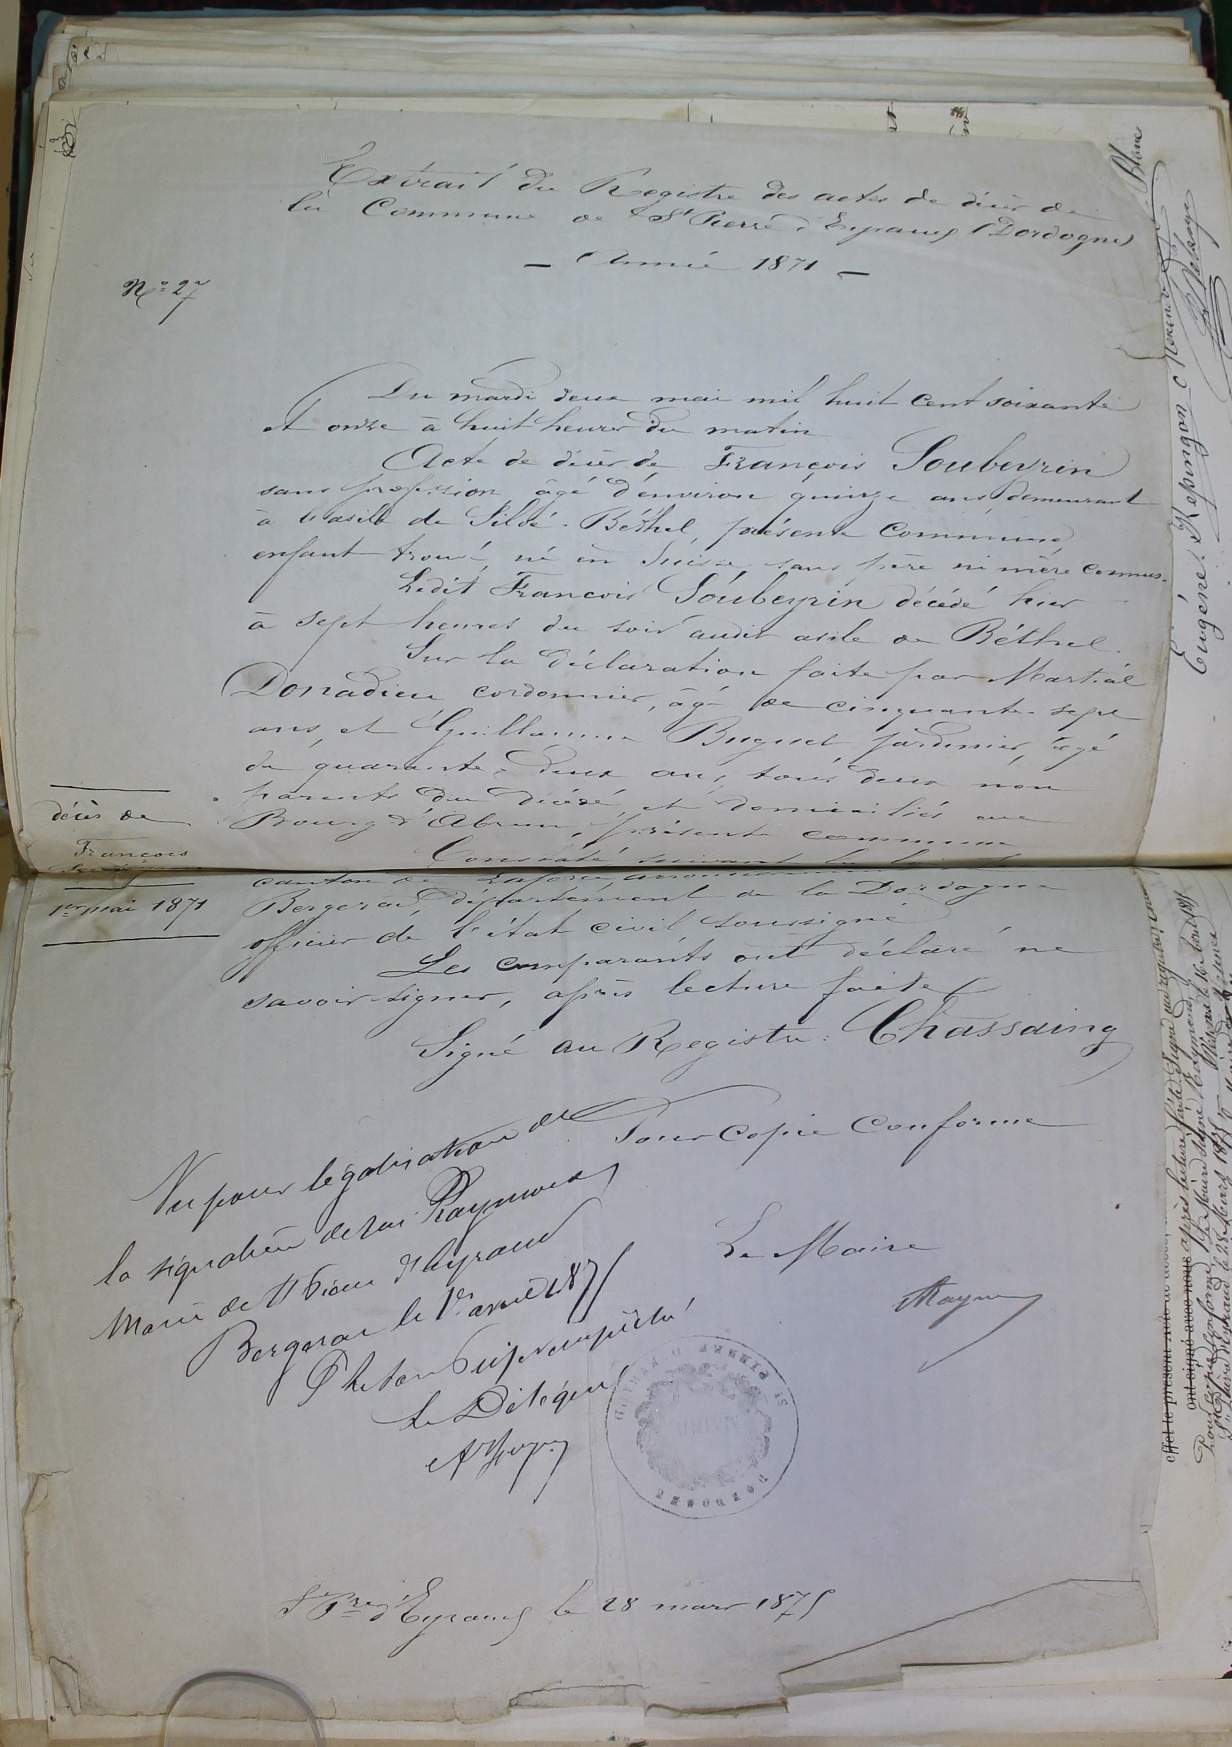 Extrait du Registre des actes de décès de
la Commune de St Pierre d'Eyraud (Dordogne)
— Année 1871 —
No 27
Du mardi deux mai mil huit cent soixante
et onze à huit heures du matin
Acte de décès de François Soubeyrin
sans profession, âgé d'environ quinze ans, demeurant
à l'asile de Siloé-Béthel, présente commune
enfant trouvé, né en Suisse sans père ni mère connus.
Ledit François Soubeyrin décédé hier
à sept heures du soir audit asile de Béthel.
Sur la déclaration faite par Martial
Donadieu cordonnier, âgé de cinquante-sept
ans, et Guillaume Buguet jardinier, âgé
de quarante-deux ans, tous deux non
parents du décédé, et domiciliés au
Bourg d', présente commune
Constaté suivant la
décès de
François
1er mai 1871
canton de Laforce, arrondissement
Bergerac, département de la Dordogne
officier de l'état civil soussigné
Les comparants ont déclaré ne
savoir signer, après lecture faite
Signé au Registre : Chassaing
Pour Copie Conforme
Le Maire
Vu pour légalisation de
la signature de Mr Raymond
Maire de St Pierre d'Eyraud
Bergerac le 1er avril 1875
P. le Sous Préfet empêché
Le Délégué
ST PIERRE D'EYRAUD
MAIRIE
DORDOGNE
St Pre d'Eyraud le 28 mars 1875
Eugène